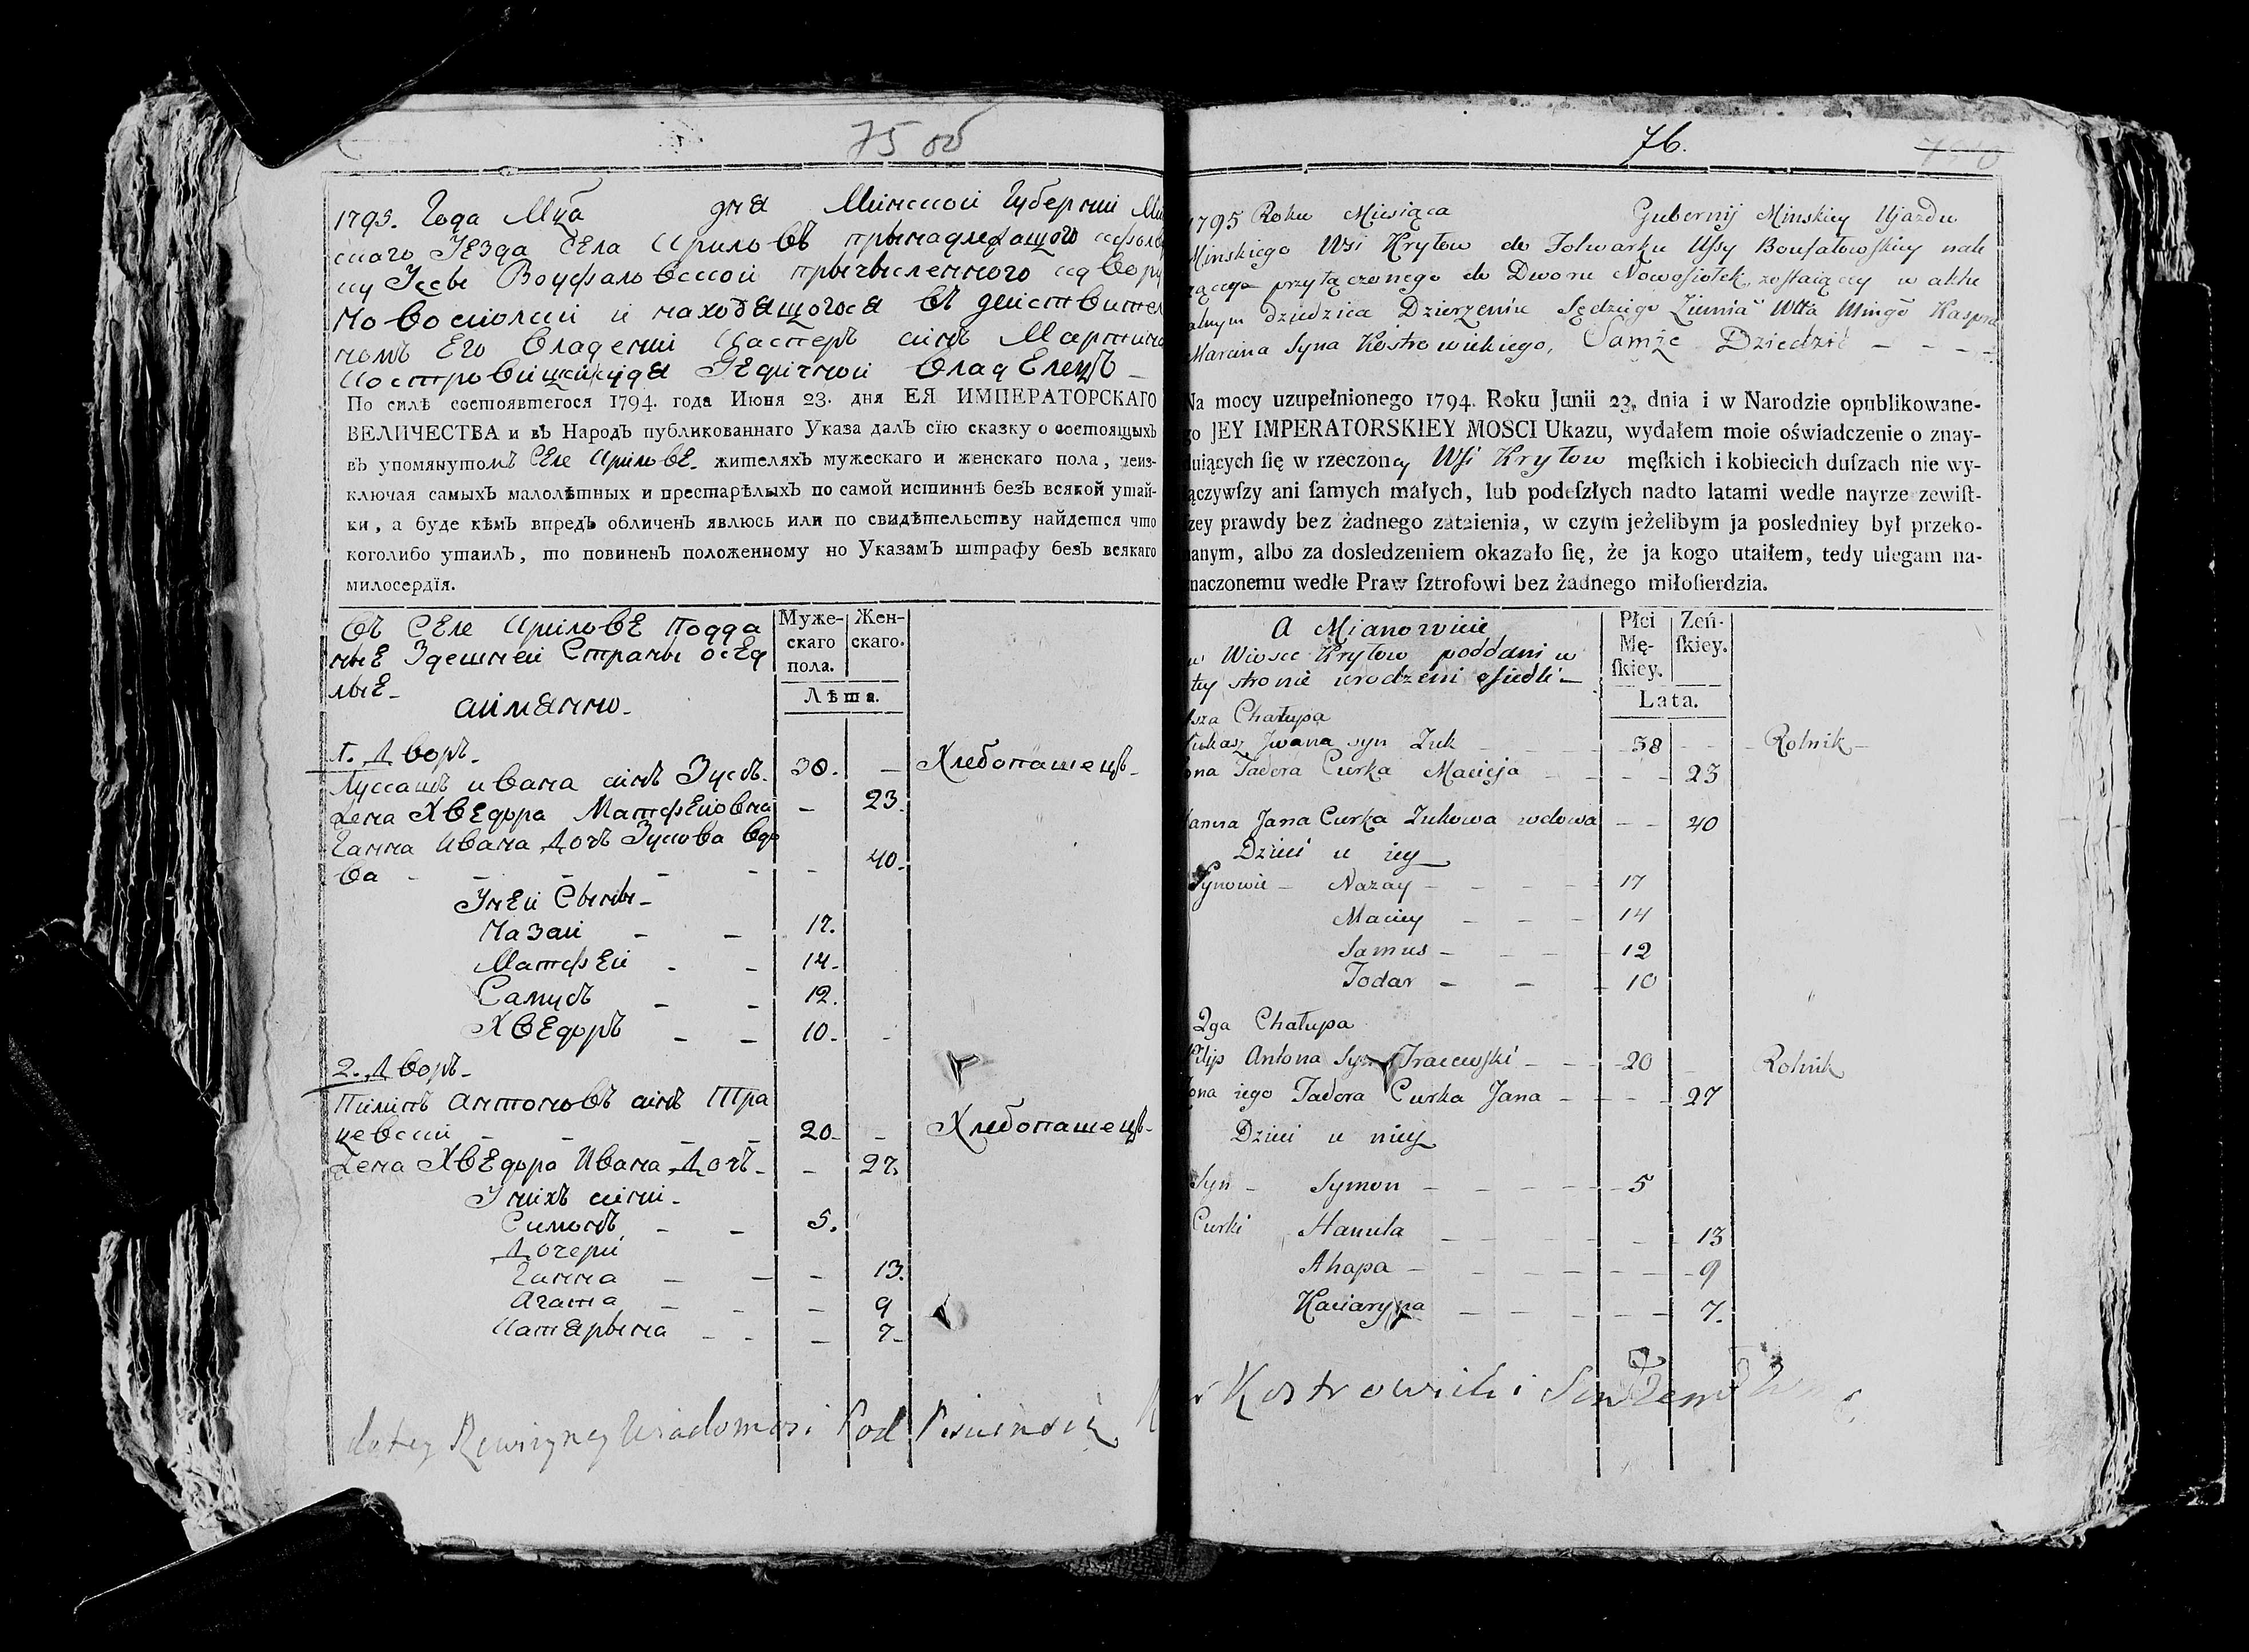 75 об
1795. Года Мца дня Минской Губернии
ского уезда села Крилов принадлежащого
ну Уссы Воуфаловской причисленного
Новосиолки и находящогося въ
номъ Его Владении Касперъ синъ
Владелецъ
По силѣ состоявшегося 1794. года Июня 23. дня ЕЯ ИМПЕРАТОРСКАГО
ВЕЛИЧЕСТВА и въ Народъ публикованнаго Указа далъ сїю сказку о состоящыхъ
въ упомянутомъ Селе Крилове. жителяхъ мужескаго и женскаго пола, неиз-
ключая самыхъ малолѣтныхъ и престарѣлыхъ по самой истиннѣ безъ всякой утай-
ки, а буде кѣмъ впредъ обличенъ явлюсь или по свидѣтельству найдется что
коголибо утаилъ, то повиненъ положенному по Указамъ штрафу безъ всякаго
милосердїя.
Въ Селе Крилове подда
ные Здешней Страны осед
лые
аимянно.
Муже-
скаго
пола.
Жен-
скаго.
Лѣта.
1. Дворъ.
Луссашъ ивана синъ Зукъ. 38. — Хлебопашецъ
Жена Хведора Матфеiовна — 23.
Ганна Ивана Дочь Зукова вдо
ва - - - - - 40.
Унеи Сыны
Назаи - - 17.
Матфеи - - 14.
Самусь - - 12.
Хведоръ - - 10. -
2. Дворъ.
Пилипъ антоновъ синъ Тра
цевский - - - 20. - Хлебопашецъ
Жена Хведора Ивана Дочъ. - 27.
Унихъ сини.
Симонъ - - 5.
Дочери
Ганна - - - 13.
Агата - - - 9
Катярына - - - 7.
do tey Rewizyney Wiadomosi Pod
76.
1795 Roku Miesiąca Gubernij Minskiey Ujazdu
Minskiego Wsi Kryłow do Folwarku Ussy Boufałowskiey nale
żącego przyłączonego do Dworu Nowosiołek, zostaiącey w aktu
alnym dziedzica Dzierzeniu Sędziego Ziemia Wtta Mingo Kaspra
Marcina Syna Kostrowickiego, Samże Dziedzic - - - -
Na mocy uzupełnionego 1794. Roku Junii 23. dnia i w Narodzie opublikowane-
go JEY IMPERATORSKIEY MOSCI Ukazu, wydałem moie oświadczenie o znay-
duiących ſię w rzeczoney Wsi Kryłow męſkich i kobiecich duſzach nie wy-
łączywſzy ani ſamych małych, lub podeſzłych nadto latami wedle nayrzezewiſt-
ſzey prawdy bez żadnego zataienia, w czym jeżelibym ja posledniey był przeko-
nanym, albo za dosledzeniem okazało ſię, że ja kogo utaiłem, tedy ulegam na-
znaczonemu wedle Praw ſztrofowi bez żadnego miłoſierdzia.
A Mianowicie
w Wiosce Kryłow poddani w
tey stronie urodzeni osiedli
Płci
Mę-
ſkiey.
Zeń-
ſkiey.
Lata.
1sza Chałupa
Łukasz Jwana syn Zuk - - - 38 - - Rolnik
Żona Tadora Curka Macieja - - - - 23
Hanna Jana Curka Zukowa wdowa - - 40
Dzieci u iey
Synowie - Nazay - - - - 17
Maciey - - - 14
Samus - - - - 12
Todar - - - 10
2ga Chałupa
Filip Antona Syn Tracewski - - - 20 - Rolnik
Żona iego Tadora Curka Jana - - - - 27
Dzieci u nich
Syn - Symon - - - - - 5
Curki Hanula - - - - - 13
Ahapa - - - - - - - 9
Kaciaryna - - - - - 7.
Kostrowicki